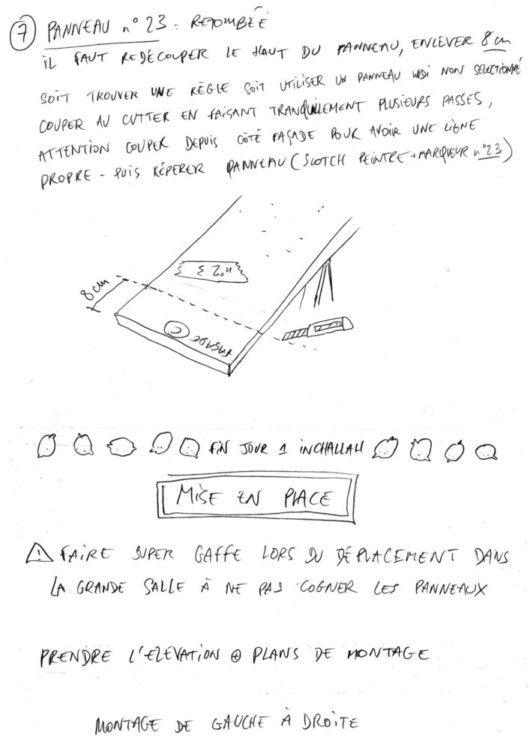 7 PANNEAU n° 23 : RETOMBÉE
iL FAUT REDÉCOUPER LE HAUT DU PANNEAU, ENLEVER 8 cm
SOIT TROUVER UNE RÈGLE SOIT UTILISER UN PANNEAU WEDI NON SELECTIONNÉ
COUPER AU CUTTER EN FAISANT TRANQUILEMENT PLUSIEURS PASSES,
ATTENTION COUPER DEPUIS CÔTÉ FAÇADE POUR AVOIR UNE LIGNE
PROPRE - PUIS RÉPERER PANNEAU (SCOTCH PEINTRE + MARQUEUR n°23)
8 cm
N°23
C FASADE
FIN JOUR 1 INCHALLAH
MISE EN PLACE
⚠ FAIRE SUPER GAFFE LORS DU DÉPLACEMENT DANS
LA GRANDE SALLE À NE PAS COGNER LES PANNEAUX
PRENDRE L'ELEVATION ⊕ PLANS DE MONTAGE
MONTAGE DE GAUCHE À DROITE